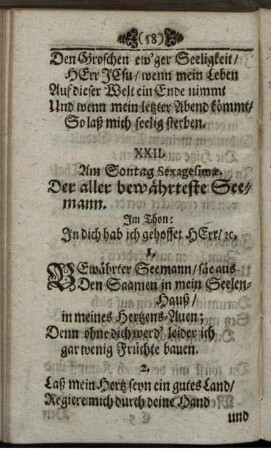 (58)
Den Groschen ew'ger Seeligkeit/
HErr JEsu/ wenn mein Leben
Auf dieser Welt ein Ende nimmt
Und wenn mein letzter Abend kömmt/
So laß mich seelig sterben.
XXII.
Am Sontag Sexagesimæ.
Der aller bewährteste See-
mann.
Im Thon:
In dich hab ich gehoffet HErr/ ꝛc.
1.
BEwährter Seemann/ säe aus
Den Saamen in mein Seelen-
Hauß/
in meines Hertzens-Auen;
Denn ohne dich werd' leider ich
gar wenig Früchte bauen.
2.
Laß mein Hertz seyn ein gutes Land/
Regiere mich durch deine Hand
und